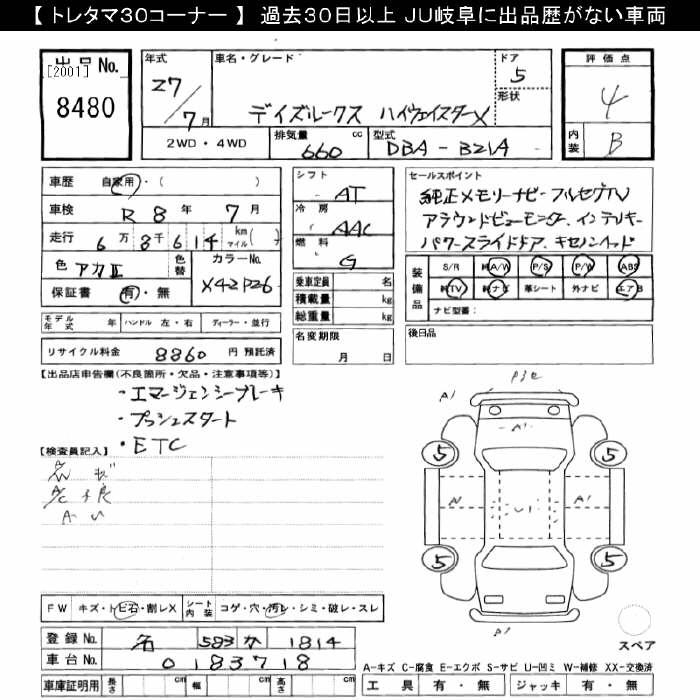 【 トレタマ30コーナー 】 過去30日以上 JU岐阜に出品歴がない車両
出品 No.
[2001]
8480
年式
27/7月
車名・グレード
デイズルークス ハイウェイスターX
ドア
5
形状
2WD・4WD
排気量 660 cc
型式 DBA-B21A
評価点
4
内装 B
車歴 自家用・( )
車検 R 8年 7月
走行 6万8千614 km マイル( )
色 アカII
色替
カラーNo. X42P26
保証書 有・無
シフト AT
冷房 AAC
燃料 G
乗車定員 名
積載量 kg
総重量 kg
セールスポイント
純正メモリーナビ フルセグTV
アラウンドビューモニター、インテリキー
パワースライドドア、キセノンヘッド
装備品
S/R 純A/W P/S P/W ABS
純TV 純ナビ 革シート 外ナビ エアB
ナビ型番:
モデル年式 年 ハンドル 左・右 ディーラー・並行
リサイクル料金 8860 円 預託済
名変期限 月 日
後日品
【出品店申告欄(不良箇所・欠品・注意事項等)】
・エマージェンシーブレーキ
・プッシュスタート
・ETC
【検査員記入】
A1
A1
A1
5
5
5
5
FW キズ・トビ石・割レX
シート内装 コゲ・穴・汚レ・シミ・破レ・スレ
登録 No. 名 583 か 1814
車台 No. 0183718
車庫証明用 長さ cm 幅 cm 高さ cm
スペア
A-キズ C-腐食 E-エクボ S-サビ U-凹ミ W-補修 XX-交換済
工具 有・無 ジャッキ 有・無